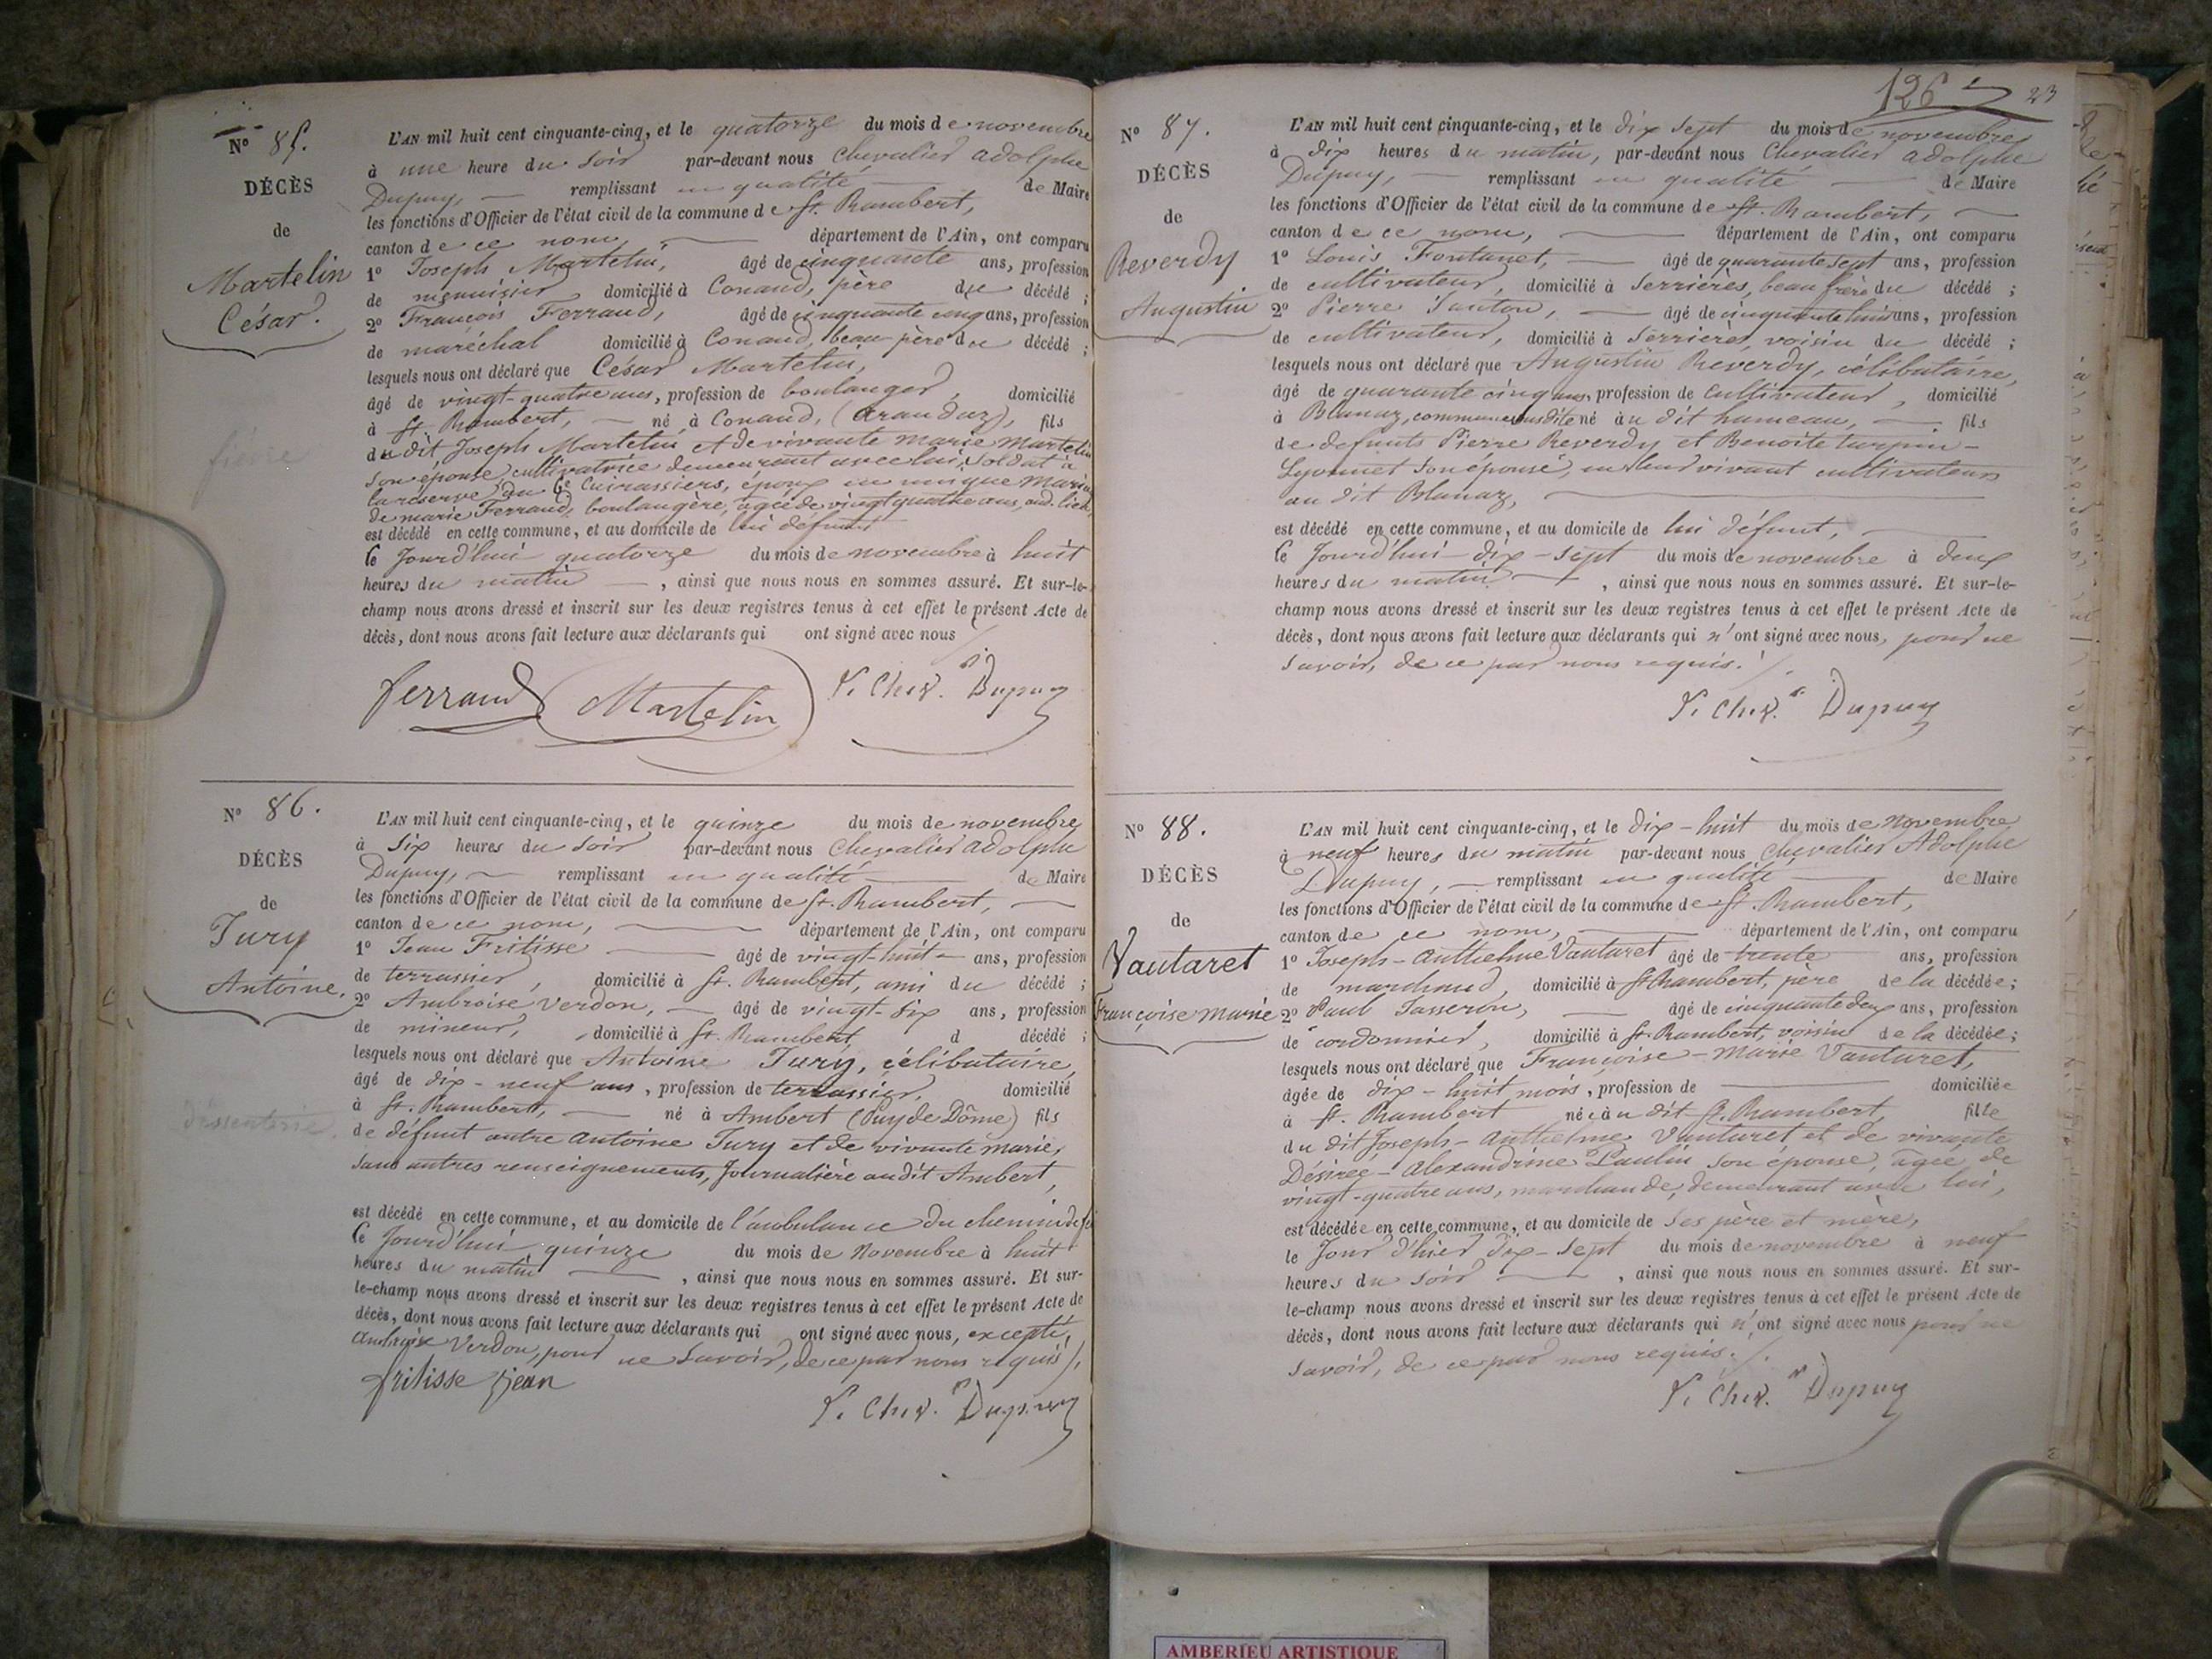 N° 85.
DÉCÈS
de
Martelin
César.
fièvre
L'AN mil huit cent cinquante-cinq, et le quatorze du mois de novembre
à une heure du soir par-devant nous Chevalier Adolphe
Dupuy, remplissant en qualité de Maire
les fonctions d'Officier de l'état civil de la commune de St. Rambert,
canton de ce nom, département de l'Ain, ont comparu
1° Joseph Martelin, âgé de cinquante ans, profession
de menuisier domicilié à Conand, père du décédé ;
2° François Ferrand, âgé de cinquante cinq ans, profession
de maréchal domicilié à Conand, beau père du décédé ;
lesquels nous ont déclaré que César Martelin,
âgé de vingt-quatre ans, profession de boulanger, domicilié
à St. Rambert, né à Conand, (Arandaz), fils
du dit Joseph Martelin et de vivante Marie Martelin
son épouse, cultivatrice demeurant avec lui, soldat à
la réserve du 6e Cuirassiers, époux en unique mariage
de marie Ferrand, boulangère, âgée de vingt quatre ans, aud. lieu,
est décédé en cette commune, et au domicile de lui défunt,
le Jourd'hui quatorze du mois de novembre à huit
heures du matin, ainsi que nous nous en sommes assuré. Et sur-le-
champ nous avons dressé et inscrit sur les deux registres tenus à cet effet le présent Acte de
décès, dont nous avons fait lecture aux déclarants qui ont signé avec nous
ferrand Martelin Chev. Dupuy
N° 86.
DÉCÈS
de
Jury
Antoine.
dissenterie.
L'AN mil huit cent cinquante-cinq, et le quinze du mois de novembre
à Six heures du Soir par-devant nous Chevalier Adolphe
Dupuy, remplissant en qualité de Maire
les fonctions d'Officier de l'état civil de la commune de St. Rambert,
canton de ce nom, département de l'Ain, ont comparu
1° Jean Fritisse âgé de vingt-huit ans, profession
de terrassier, domicilié à St. Rambert, ami du décédé ;
2° Ambroise Verdon, âgé de vingt-six ans, profession
de mineur, domicilié à St. Rambert d décédé ;
lesquels nous ont déclaré que Antoine Jury, célibataire,
âgé de dix-neuf ans, profession de terrassier, domicilié
à St. Rambert, né à Ambert (Puy de Dôme) fils
de défunt autre Antoine Jury et de vivante marie,
sans autres renseignements, Journalière au dit Ambert,
est décédé en cette commune, et au domicile de l'ambulance du chemin de fer
le Jourd'hui quinze du mois de Novembre à huit
heures du matin, ainsi que nous nous en sommes assuré. Et sur-
le-champ nous avons dressé et inscrit sur les deux registres tenus à cet effet le présent Acte de
décès, dont nous avons fait lecture aux déclarants qui ont signé avec nous, excepté,
Ambroise Verdon, pour ne savoir, de ce par nous requis/.
fritisse jean Chev. Dupuy
126 23
N° 87.
DÉCÈS
de
Reverdy
Augustin
L'AN mil huit cent cinquante-cinq, et le dix sept du mois de novembre
à dix heures du matin, par-devant nous Chevalier Adolphe
Dupuy, remplissant en qualité de Maire
les fonctions d'Officier de l'état civil de la commune de St. Rambert,
canton de ce nom, département de l'Ain, ont comparu
1° Louis Fontanet, âgé de quarante sept ans, profession
de cultivateur, domicilié à Serrières, beau frère du décédé ;
2° Pierre Tanton, âgé de cinquante huit ans, profession
de cultivateur, domicilié à Serrières, voisin du décédé ;
lesquels nous ont déclaré que Augustin Reverdy, célibataire,
âgé de quarante cinq ans, profession de cultivateur, domicilié
à Blanaz, commune susdite né au dit hameau, fils
de defunts Pierre Reverdy et Benoite turpin-
Lyonnet son épouse, en leur vivant cultivateurs
au dit Blanaz,
est décédé en cette commune, et au domicile de lui défunt,
le Jourd'hui dix-sept du mois de novembre à deux
heures du matin, ainsi que nous nous en sommes assuré. Et sur-le-
champ nous avons dressé et inscrit sur les deux registres tenus à cet effet le présent Acte de
décès, dont nous avons fait lecture aux déclarants qui n'ont signé avec nous, pour ne
savoir, de ce par nous requis./.
Chev. Dupuy
N° 88.
DÉCÈS
de
Vautaret
Françoise Marie
L'AN mil huit cent cinquante-cinq, et le dix-huit du mois de Novembre
à neuf heures du matin par-devant nous Chevalier Adolphe
Dupuy, remplissant en qualité de Maire
les fonctions d'Officier de l'état civil de la commune de St. Rambert,
canton de ce nom, département de l'Ain, ont comparu
1° Joseph-Anthelme Vautaret âgé de trente ans, profession
de marchand, domicilié à St Rambert, père de la décédée ;
2° Paul Tasseron, âgé de cinquante deux ans, profession
de cordonnier, domicilié à St. Rambert, voisin de la décédée ;
lesquels nous ont déclaré que Françoise-Marie Vautaret,
âgée de dix-huit mois, profession de domiciliée
à St. Rambert née au dit St. Rambert, fille
du dit Joseph-Anthelme Vautaret et de vivante
Désirée-Alexandrine Paulin son épouse, âgée de
vingt-quatre ans, marchande, demeurant avec lui,
est décédée en cette commune, et au domicile de ses père et mère,
le Jour d'hier dix-sept du mois de novembre à neuf
heures du Soir, ainsi que nous nous en sommes assuré. Et sur-
le-champ nous avons dressé et inscrit sur les deux registres tenus à cet effet le présent Acte de
décès, dont nous avons fait lecture aux déclarants qui n'ont signé avec nous pour ne
savoir, de ce par nous requis./.
Chev. Dupuy
AMBERIEU ARTISTIQUE